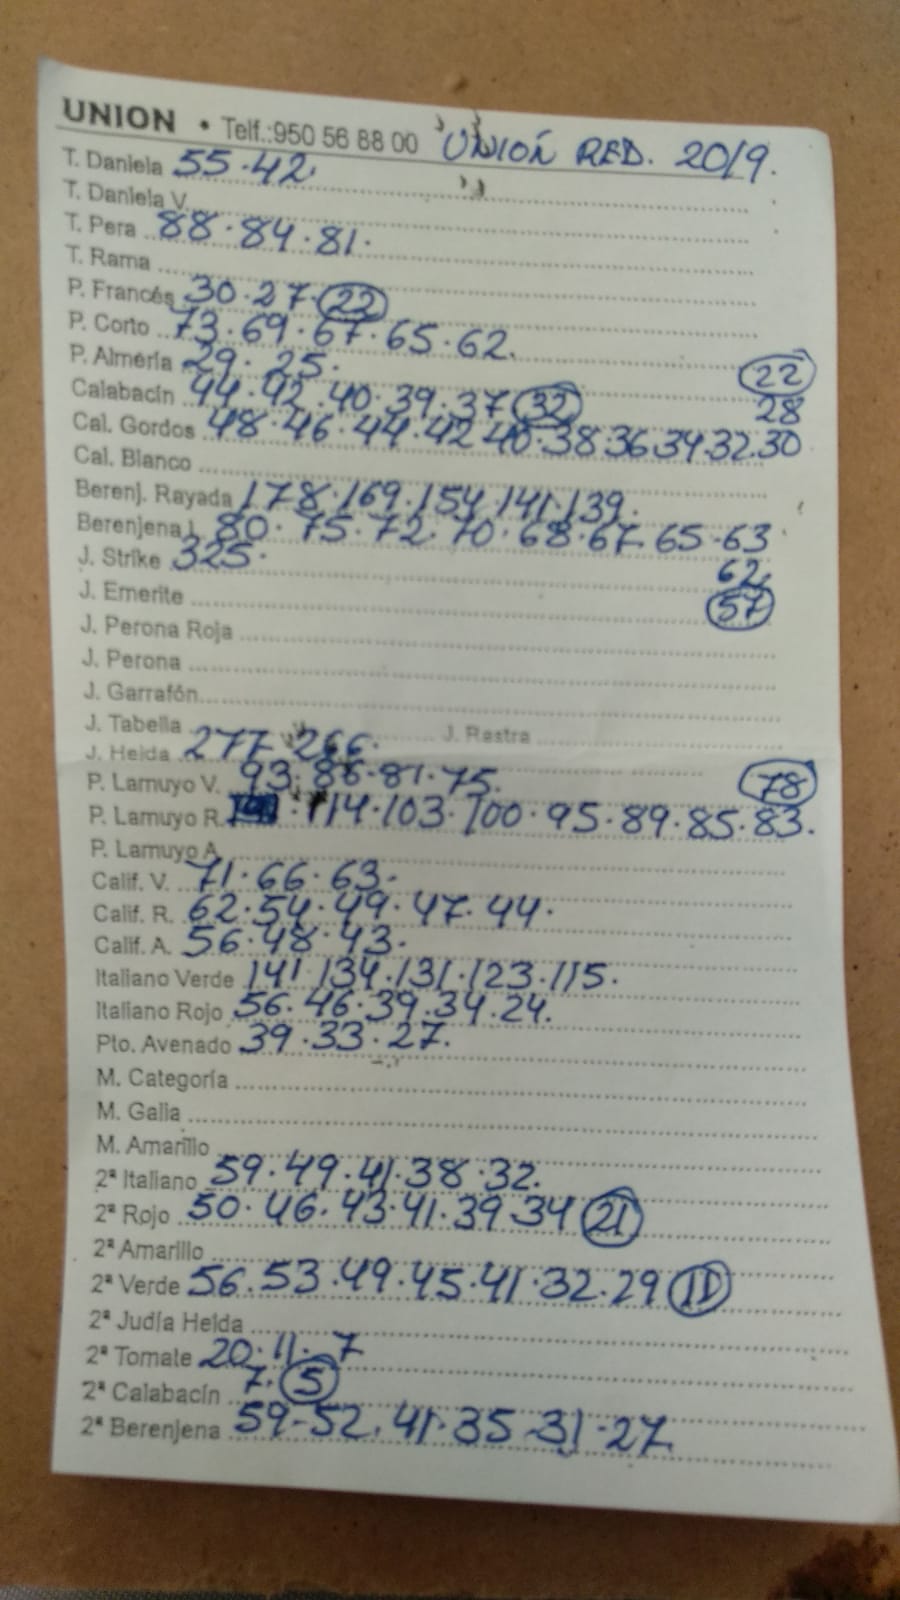 UNION • Telf.:950 56 88 00 UNIÓN RED. 20/9.
T. Daniela 55.42.
T. Daniela V.
T. Pera 88.84.81.
T. Rama
P. Francés 30.27.22
P. Corto 73.69.67.65.62.
P. Almería 29.25.
22
Calabacín 44.42.40.39.37 32
28
Cal. Gordos 48.46.44.42 40.38.36 34.32.30
Cal. Blanco
Berenj. Rayada 178.169.154.141.139.
Berenjena L. 80.75.72.70.68.67.65.63
62.
57
J. Strike 325.
J. Emerite
J. Perona Roja
J. Perona
J. Garrafón
J. Tabella J. Rastra
J. Helda 277 266.
P. Lamuyo V. 93.86.81.75.
78
P. Lamuyo R. 114.103.100.95.89.85.83.
P. Lamuyo A.
Calif. V. 71.66.63.
Calif. R. 62.54.49.47.44.
Calif. A. 56.48.43.
Italiano Verde 141 134.131.123.115.
Italiano Rojo 56.46.39.34.24.
Pto. Avenado 39.33.27.
M. Categoría
M. Galia
M. Amarillo
2ª Italiano 59.49.41.38.32.
2ª Rojo 50.46.43.41.39.34 21
2ª Amarillo
2ª Verde 56.53.49.45.41.32.29 11
2ª Judía Helda
2ª Tomate 20.11.7
2ª Calabacín 7.5
2ª Berenjena 59-52.41.35.31.27.